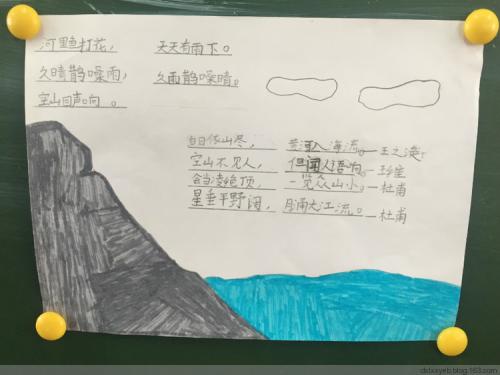 河里鱼打花， 天天有雨下。
久晴鹊噪雨， 久雨鹊噪晴。
空山回声响 。
白日依山尽， 黄河入海流。—王之涣
空山不见人， 但闻人语响。—王维
会当凌绝顶， 一览众山小。—杜甫
星垂平野阔， 月涌大江流。—杜甫